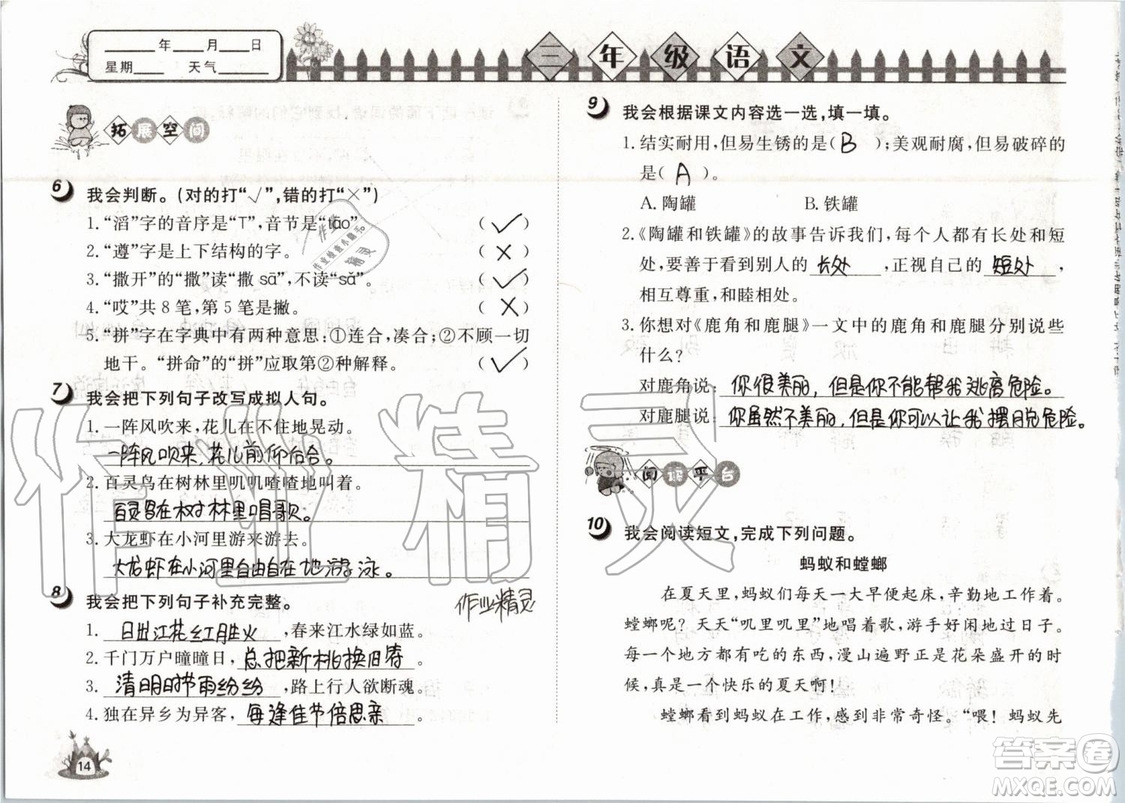 年 月 日
星期 天气
三年级语文
拓展空间
6 我会判断。(对的打“√”,错的打“×”)
1.“滔”字的音序是“T”,音节是“tāo” (√)
2.“遵”字是上下结构的字。 (×)
3.“撒开”的“撒”读“撒 sā”,不读“sǎ”。 (√)
4.“哎”共8笔,第5笔是撇。 (×)
5.“拼”字在字典中有两种意思:①连合,凑合;②不顾一切
地干。“拼命”的“拼”应取第②种解释。 (√)
7 我会把下列句子改写成拟人句。
1.一阵风吹来,花儿在不住地晃动。
一阵风吹来,花儿前仰后合。
2.百灵鸟在树林里叽叽喳喳地叫着。
百灵鸟在树林里唱歌。
3.大龙虾在小河里游来游去。
大龙虾在小河里自由自在地游泳。
8 我会把下列句子补充完整。
作业精灵
1. 日出江花红胜火,春来江水绿如蓝。
2.千门万户曈曈日,总把新桃换旧符
3. 清明时节雨纷纷,路上行人欲断魂。
4.独在异乡为异客,每逢佳节倍思亲
14
9 我会根据课文内容选一选,填一填。
1.结实耐用,但易生锈的是( B );美观耐腐,但易破碎的
是( A )。
A.陶罐 B.铁罐
2.《陶罐和铁罐》的故事告诉我们,每个人都有长处和短
处,要善于看到别人的 长处,正视自己的 短处,
相互尊重,和睦相处。
3.你想对《鹿角和鹿腿》一文中的鹿角和鹿腿分别说些
什么?
对鹿角说:你很美丽,但是你不能帮我逃离危险。
对鹿腿说:你虽然不美丽,但是你可以让我摆脱危险。
阅读平台
10 我会阅读短文,完成下列问题。
蚂蚁和螳螂
在夏天里,蚂蚁们每天起早贪黑,辛勤地工作着。
螳螂呢?天天“叽里叽里”地唱着歌,游手好闲地过日子。
每一个地方都有吃的东西,漫山遍野正是花朵盛开的时
候,真是一个快乐的夏天啊!
螳螂看到蚂蚁在工作,感到非常奇怪。“喂!蚂蚁先
作业精灵
答案圈
MXQE.COM